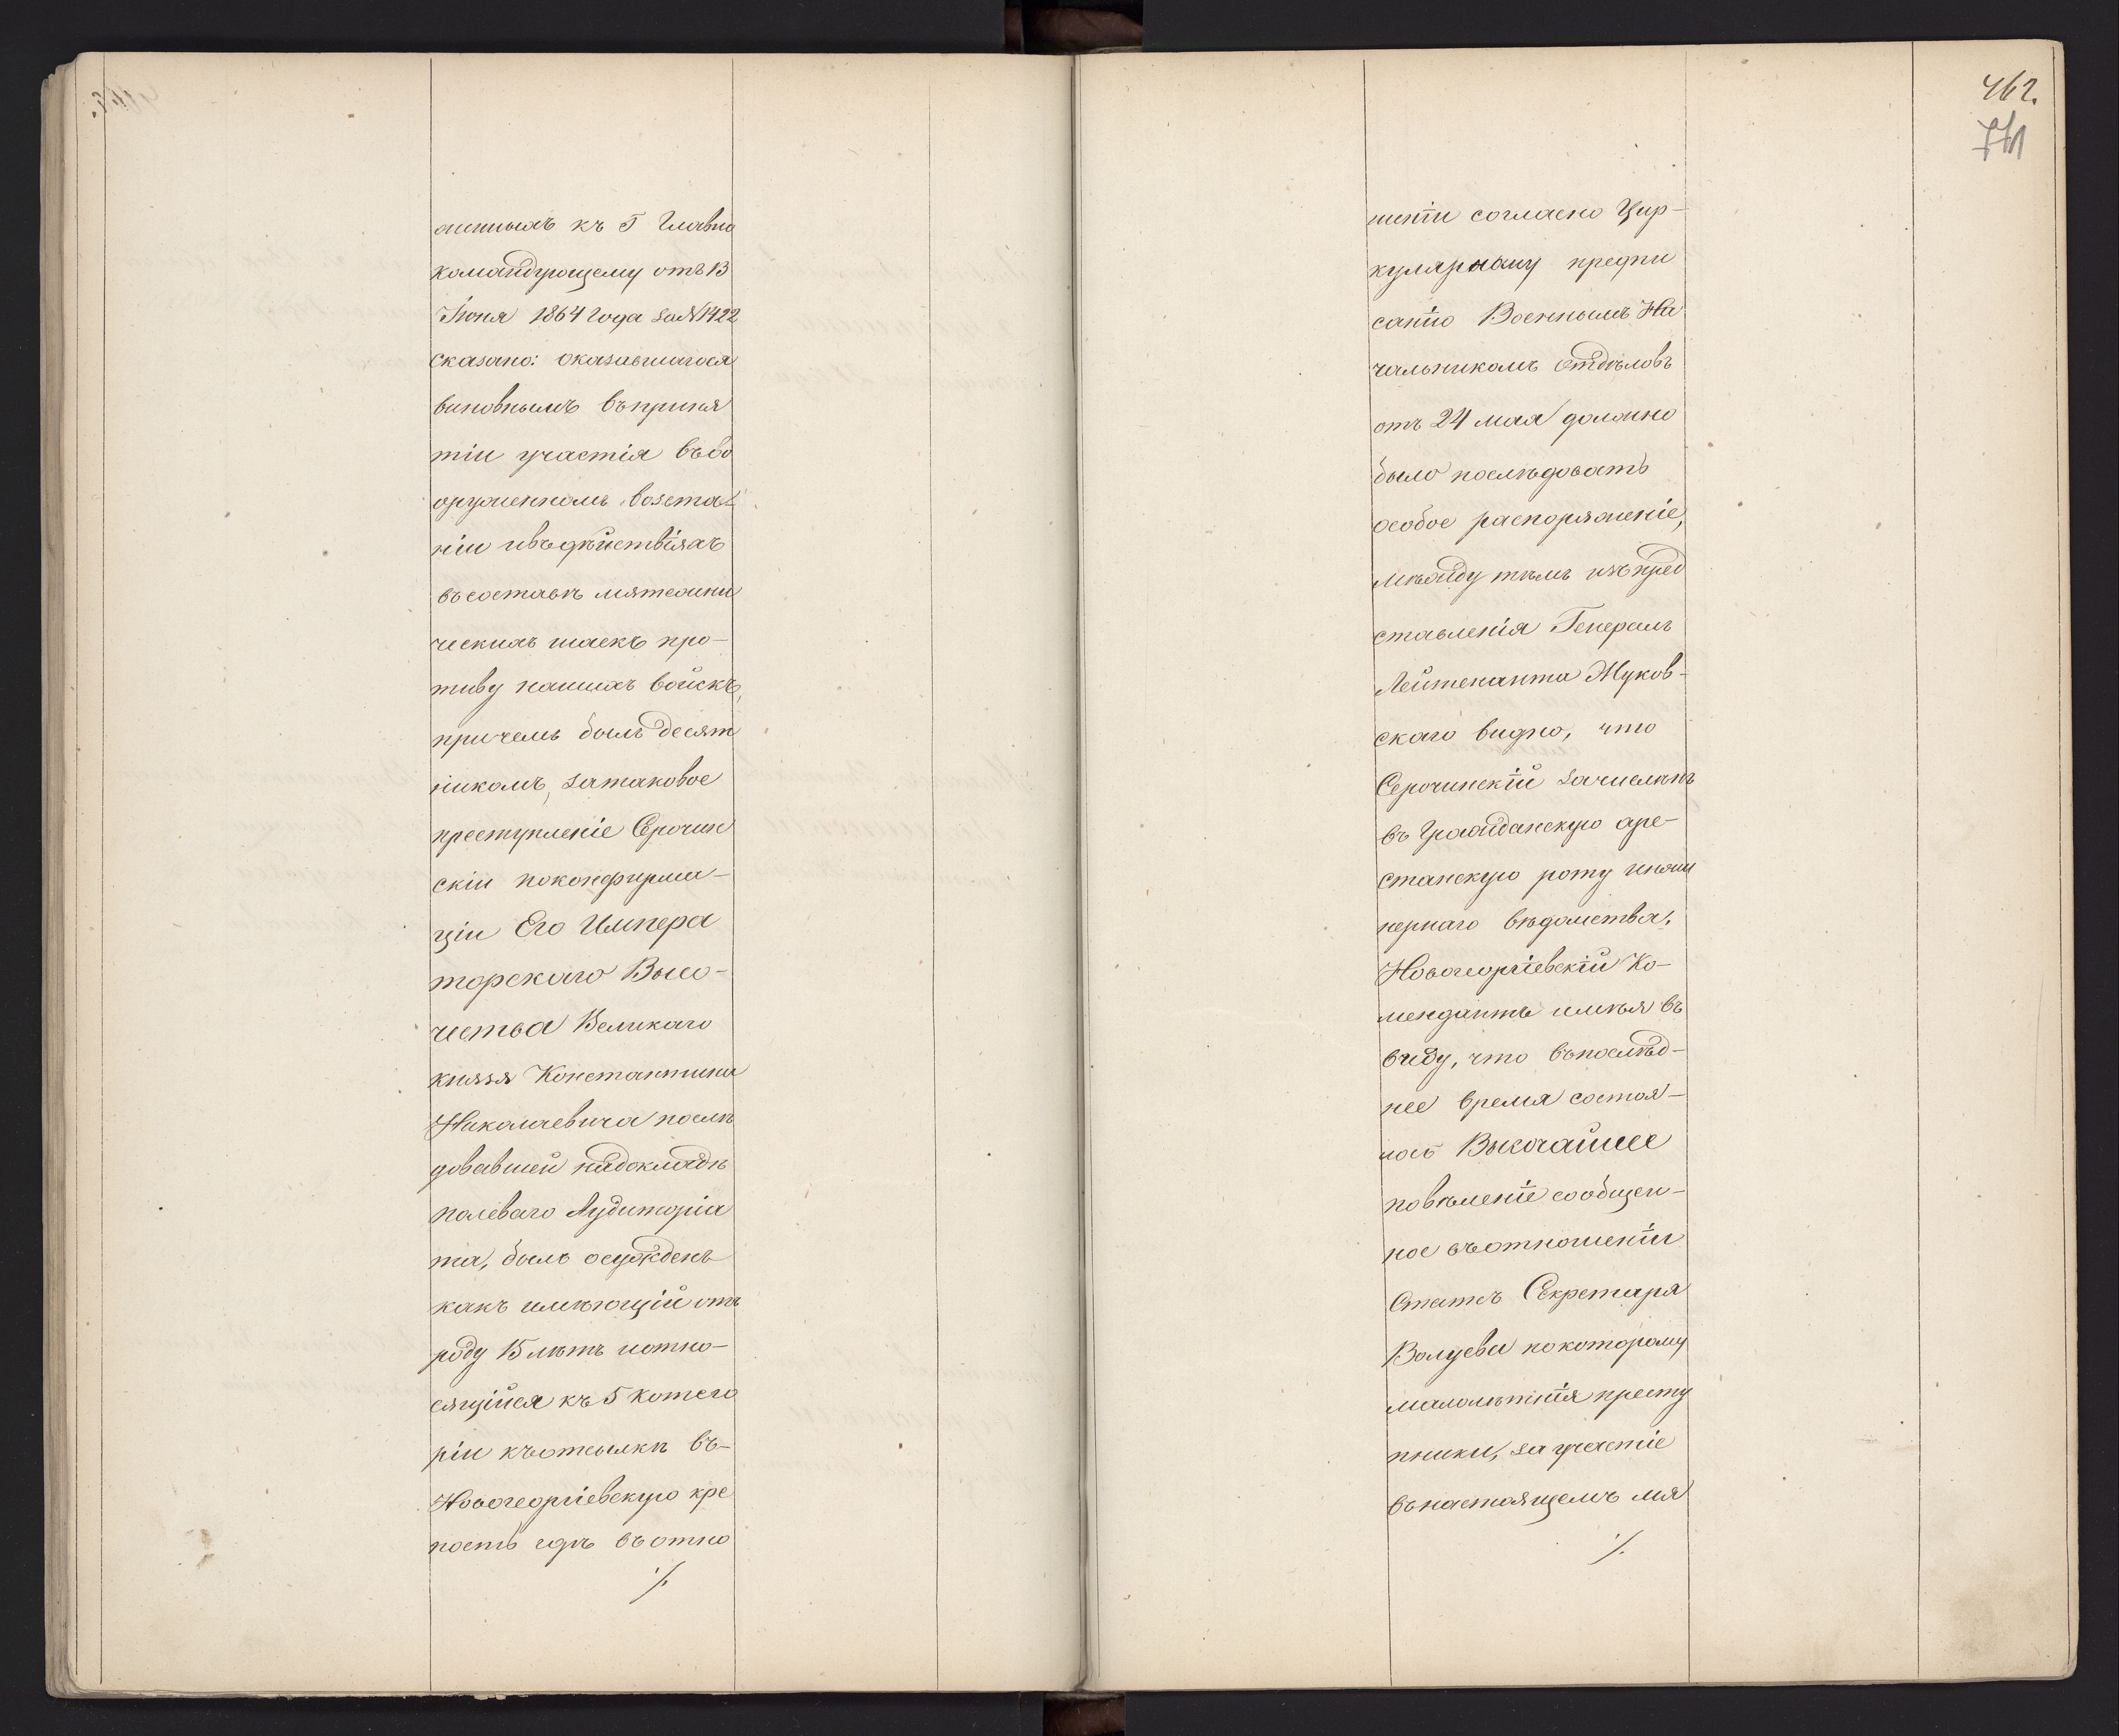 женныхъ къ Г Главно
командующему отъ 13
Іюня 1864 года за №1422
сказано: оказавшагося
виновнымъ въ приня
тіи участія въ во
оруженномъ возста-
ніи и въ дѣйствіяхъ
въ составѣ мятежни
ческихъ шаекъ про-
тиву нашихъ войскъ,
при чемъ былъ десят
никомъ, за таковое
преступленіе Срочин
скій по конфирма-
ціи Его Импера
торскаго Высо-
чества Великаго
князя Константина
Николаевича послѣ
довавшей на докладѣ
полеваго Аудиторіа
та, былъ осужденъ
какъ имѣющій отъ
роду 15 лѣтъ и отно-
сящійся къ 5 катего
ріи къ отсылкѣ въ-
Новогеоргіевскую кре
пость гдѣ въ отно
./.
462.
771
шеніи согласно Цир-
кулярному предпи
санію Военнымъ На
чальникомъ Отдѣловъ
отъ 24 мая должно
было послѣдовать
особое распоряженіе,
мѣжду тѣмъ изъ пред
ставленія Генералъ
Лейтенанта Жуков-
скаго видно, что
Серочинскій зачисленъ
въ Гражданскую аре-
станскую роту инжи
нернаго вѣдомства,
Новогеоргіевскій Ко-
мендантъ имѣя въ
виду, что въ послѣд-
нее время состоя-
лось Высочайшее
повѣленіе сообщен-
ное въ отношеніи
Статсъ Секретаря
Валуева по которому
малолѣтнія престу
пники, за участіе
въ настоящемъ мя
./.